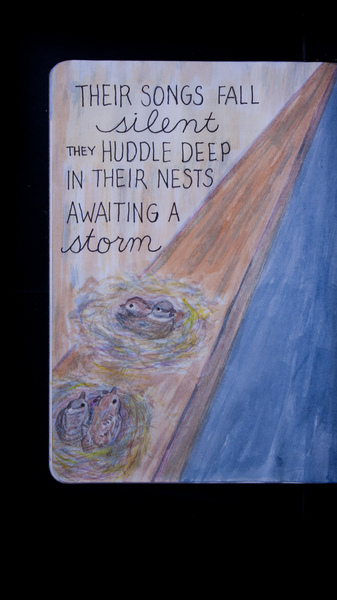 THEIR SONGS FALL
silent
THEY HUDDLE DEEP
IN THEIR NESTS
AWAITING A
storm